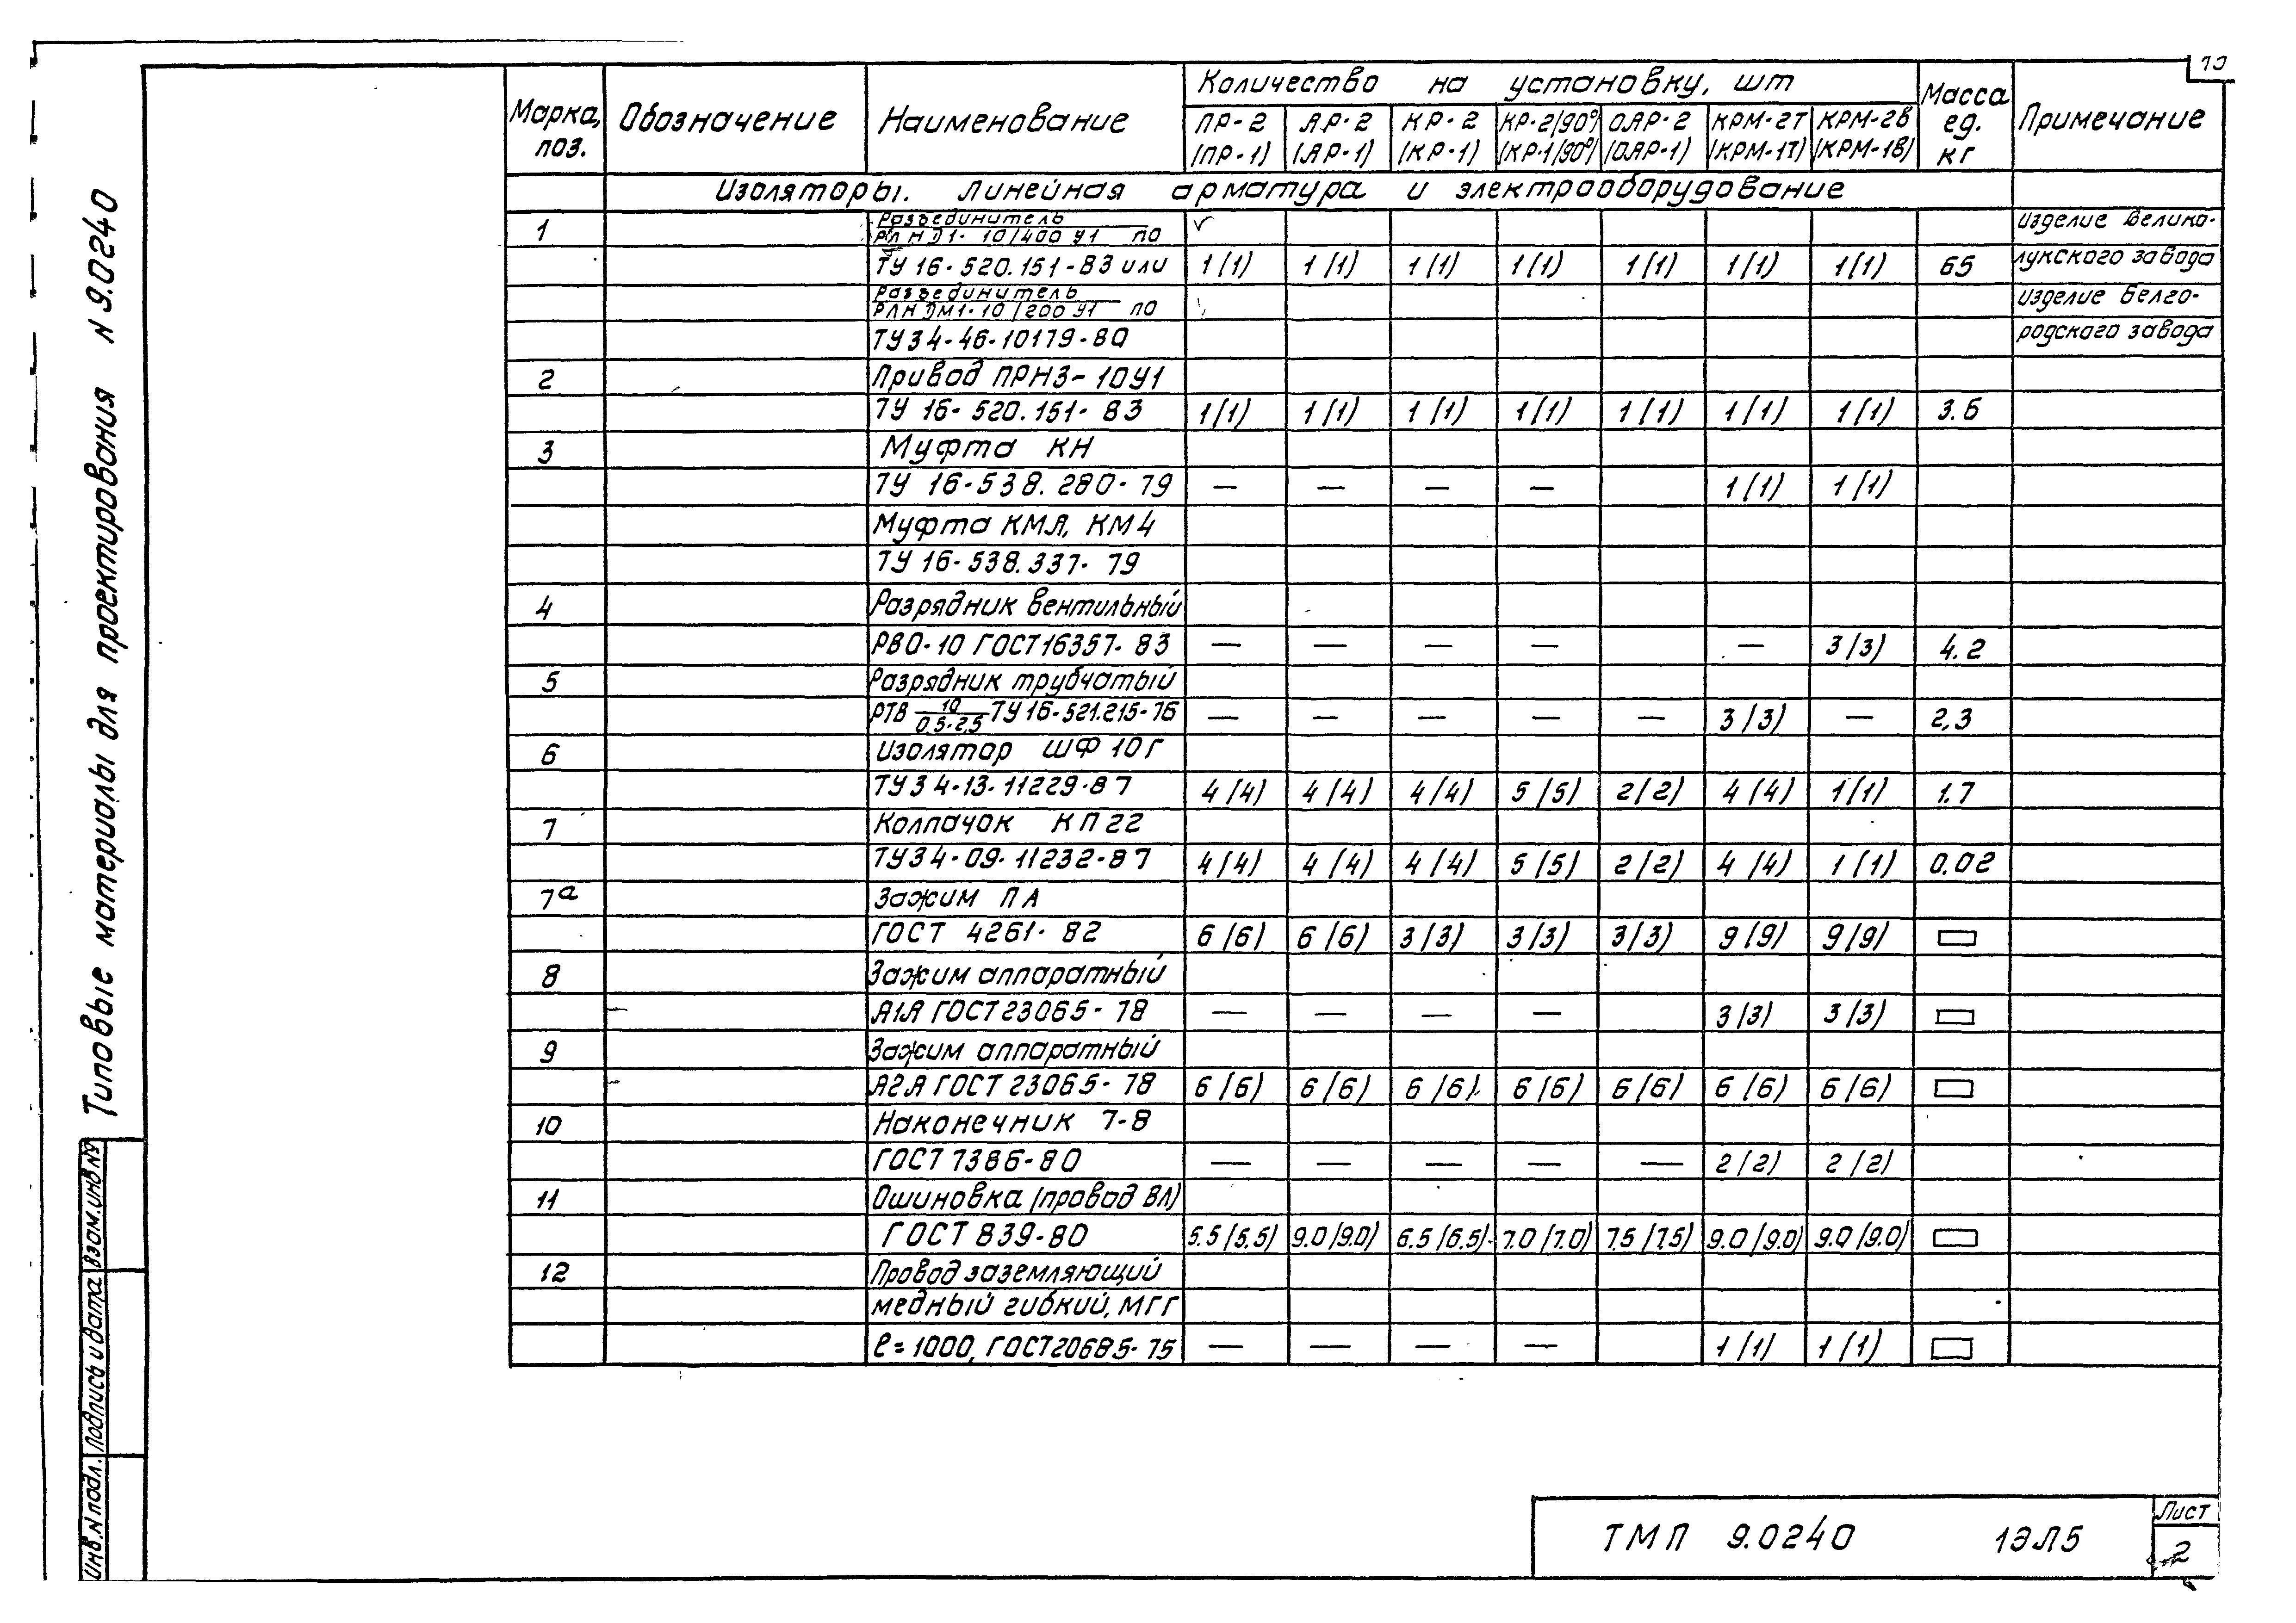 Типовые материалы для проектирования N 9.0240
Инв.N подл. Подпись и дата Взам.инв.№
Марка, поз. Обозначение Наименование Количество на установку, шт Масса ед. кг Примечание
ПР-2 АР-2 КР-2 КР-2(90°) ОАР-2 КРМ-2Т КРМ-2В
(ПР-1) (АР-1) (КР-1) (КР-1(90°) (ОАР-1) (КРМ-1Т) (КРМ-1В)
Изоляторы. Линейная арматура и электрооборудование
1 Разъединитель Изделие Велико-
РЛНД1-10/400 У1 по
ТУ 16-520.151-83 или 1(1) 1(1) 1(1) 1(1) 1(1) 1(1) 1(1) 65 лукского завода
Разъединитель Изделие Белго-
РЛНДМ1-10/200 У1 по
ТУ34-46-10179-80 родского завода
2 Привод ПРНЗ-10У1
ТУ 16-520.151-83 1(1) 1(1) 1(1) 1(1) 1(1) 1(1) 1(1) 3.6
3 Муфта КН
ТУ 16-538.280-79 — — — — 1(1) 1(1)
Муфта КМА, КМ4
ТУ 16-538.337-79
4 Разрядник вентильный
РВО-10 ГОСТ16357-83 — — — — — 3(3) 4.2
5 Разрядник трубчатый
РТВ 10/0.5-2,5 ТУ16-521.215-76 — — — — — 3(3) — 2,3
6 Изолятор ШФ 10Г
ТУ34-13-11229-87 4(4) 4(4) 4(4) 5(5) 2(2) 4(4) 1(1) 1.7
7 Колпачок КП22
ТУ34-09-11232-87 4(4) 4(4) 4(4) 5(5) 2(2) 4(4) 1(1) 0.02
7а Зажим ПА
ГОСТ 4261-82 6(6) 6(6) 3(3) 3(3) 3(3) 9(9) 9(9)
8 Зажим аппаратный
А1А ГОСТ23065-78 — — — — 3(3) 3(3)
9 Зажим аппаратный
А2А ГОСТ 23065-78 6(6) 6(6) 6(6) 6(6) 6(6) 6(6) 6(6)
10 Наконечник 7-8
ГОСТ 7386-80 — — — — — 2(2) 2(2)
11 Ошиновка (провод ВЛ)
ГОСТ 839-80 5.5(5.5) 9.0(9.0) 6.5(6.5) 7.0(7.0) 7.5(7.5) 9.0(9.0) 9.0(9.0)
12 Провод заземляющий
медный гибкий, МГГ
ℓ=1000, ГОСТ20685-75 — — — — 1(1) 1(1)
ТМП 9.0240 1ЭЛ5 Лист
2